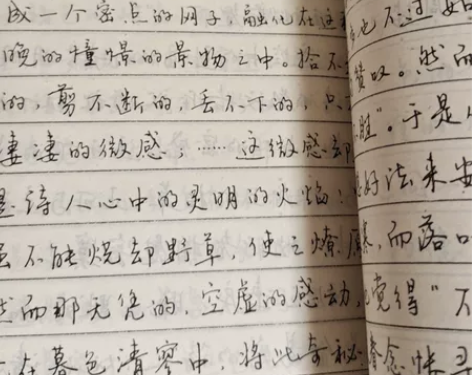 成一个密点的网子，融化在这
晚的憧憬的景物之中。拾不
的，剪不断的，丢不下的，只
凄凄的微感；……这微感却
是诗人心中的灵明的火焰！
虽不能烧却野草，使之燎
然而那无凭的，空虚的感动，
在暮色清寥中，将此奇秘
也不过如
赞叹。然而
胜”。于是
好法来安
原，而落
觉得“不